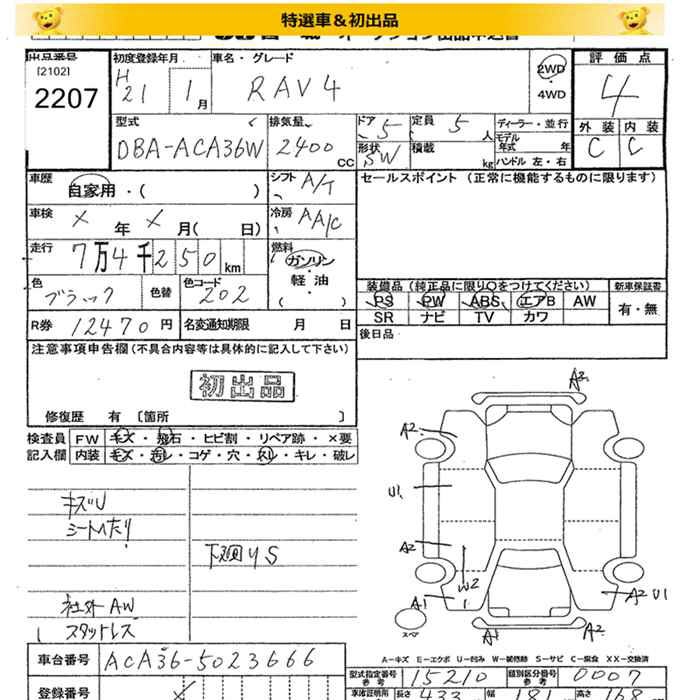 特選車＆初出品
出品番号
[2102]
2207
初度登録年月
H
21 1月
車名・グレード
RAV4
2WD
・
4WD
評価点
4
外装 内装
C C
型式
DBA-ACA36W
排気量
2400 CC
ドア 5
形状 SW
定員 5 人
積載 kg
ディーラー・並行
モデル年式 年
ハンドル 左・右
車歴
自家用・( )
シフト A/T
セールスポイント (正常に機能するものに限ります)
車検 × 年 × 月( 日)
冷房 AA/C
走行
7万4千250km
燃料
ガソリン
・
軽油
・
( )
色
ブラック
色替
色コード
202
装備品 (純正品に限り○をつけてください)
PS PW ABS エアB AW
SR ナビ TV カワ
新車保証書
有・無
R券 12470円
名変通知期限 月 日
後日品
注意事項申告欄(不具合内容等は具体的に記入して下さい)
初出品
修復歴 有 [箇所 ]
検査員
記入欄
FW キズ・飛石・ヒビ割・リペア跡・×要
内装 キズ・汚レ・コゲ・穴・スレ・キレ・破レ
キズU
シートヘたり
下廻りS
社外AW
スタットレス
A2
A2
U1
A2
W2
A1
A2 U1
A1
A2
スペア
A−キズ E−エクボ U−凹み W−補修跡 S−サビ C−腐食 XX−交換済
車台番号 ACA36-5023666
登録番号 ×
型式指定番号
参考
15210
類別区分番号
参考
0007
車庫証明用 長さ 433 幅 181 高さ 168